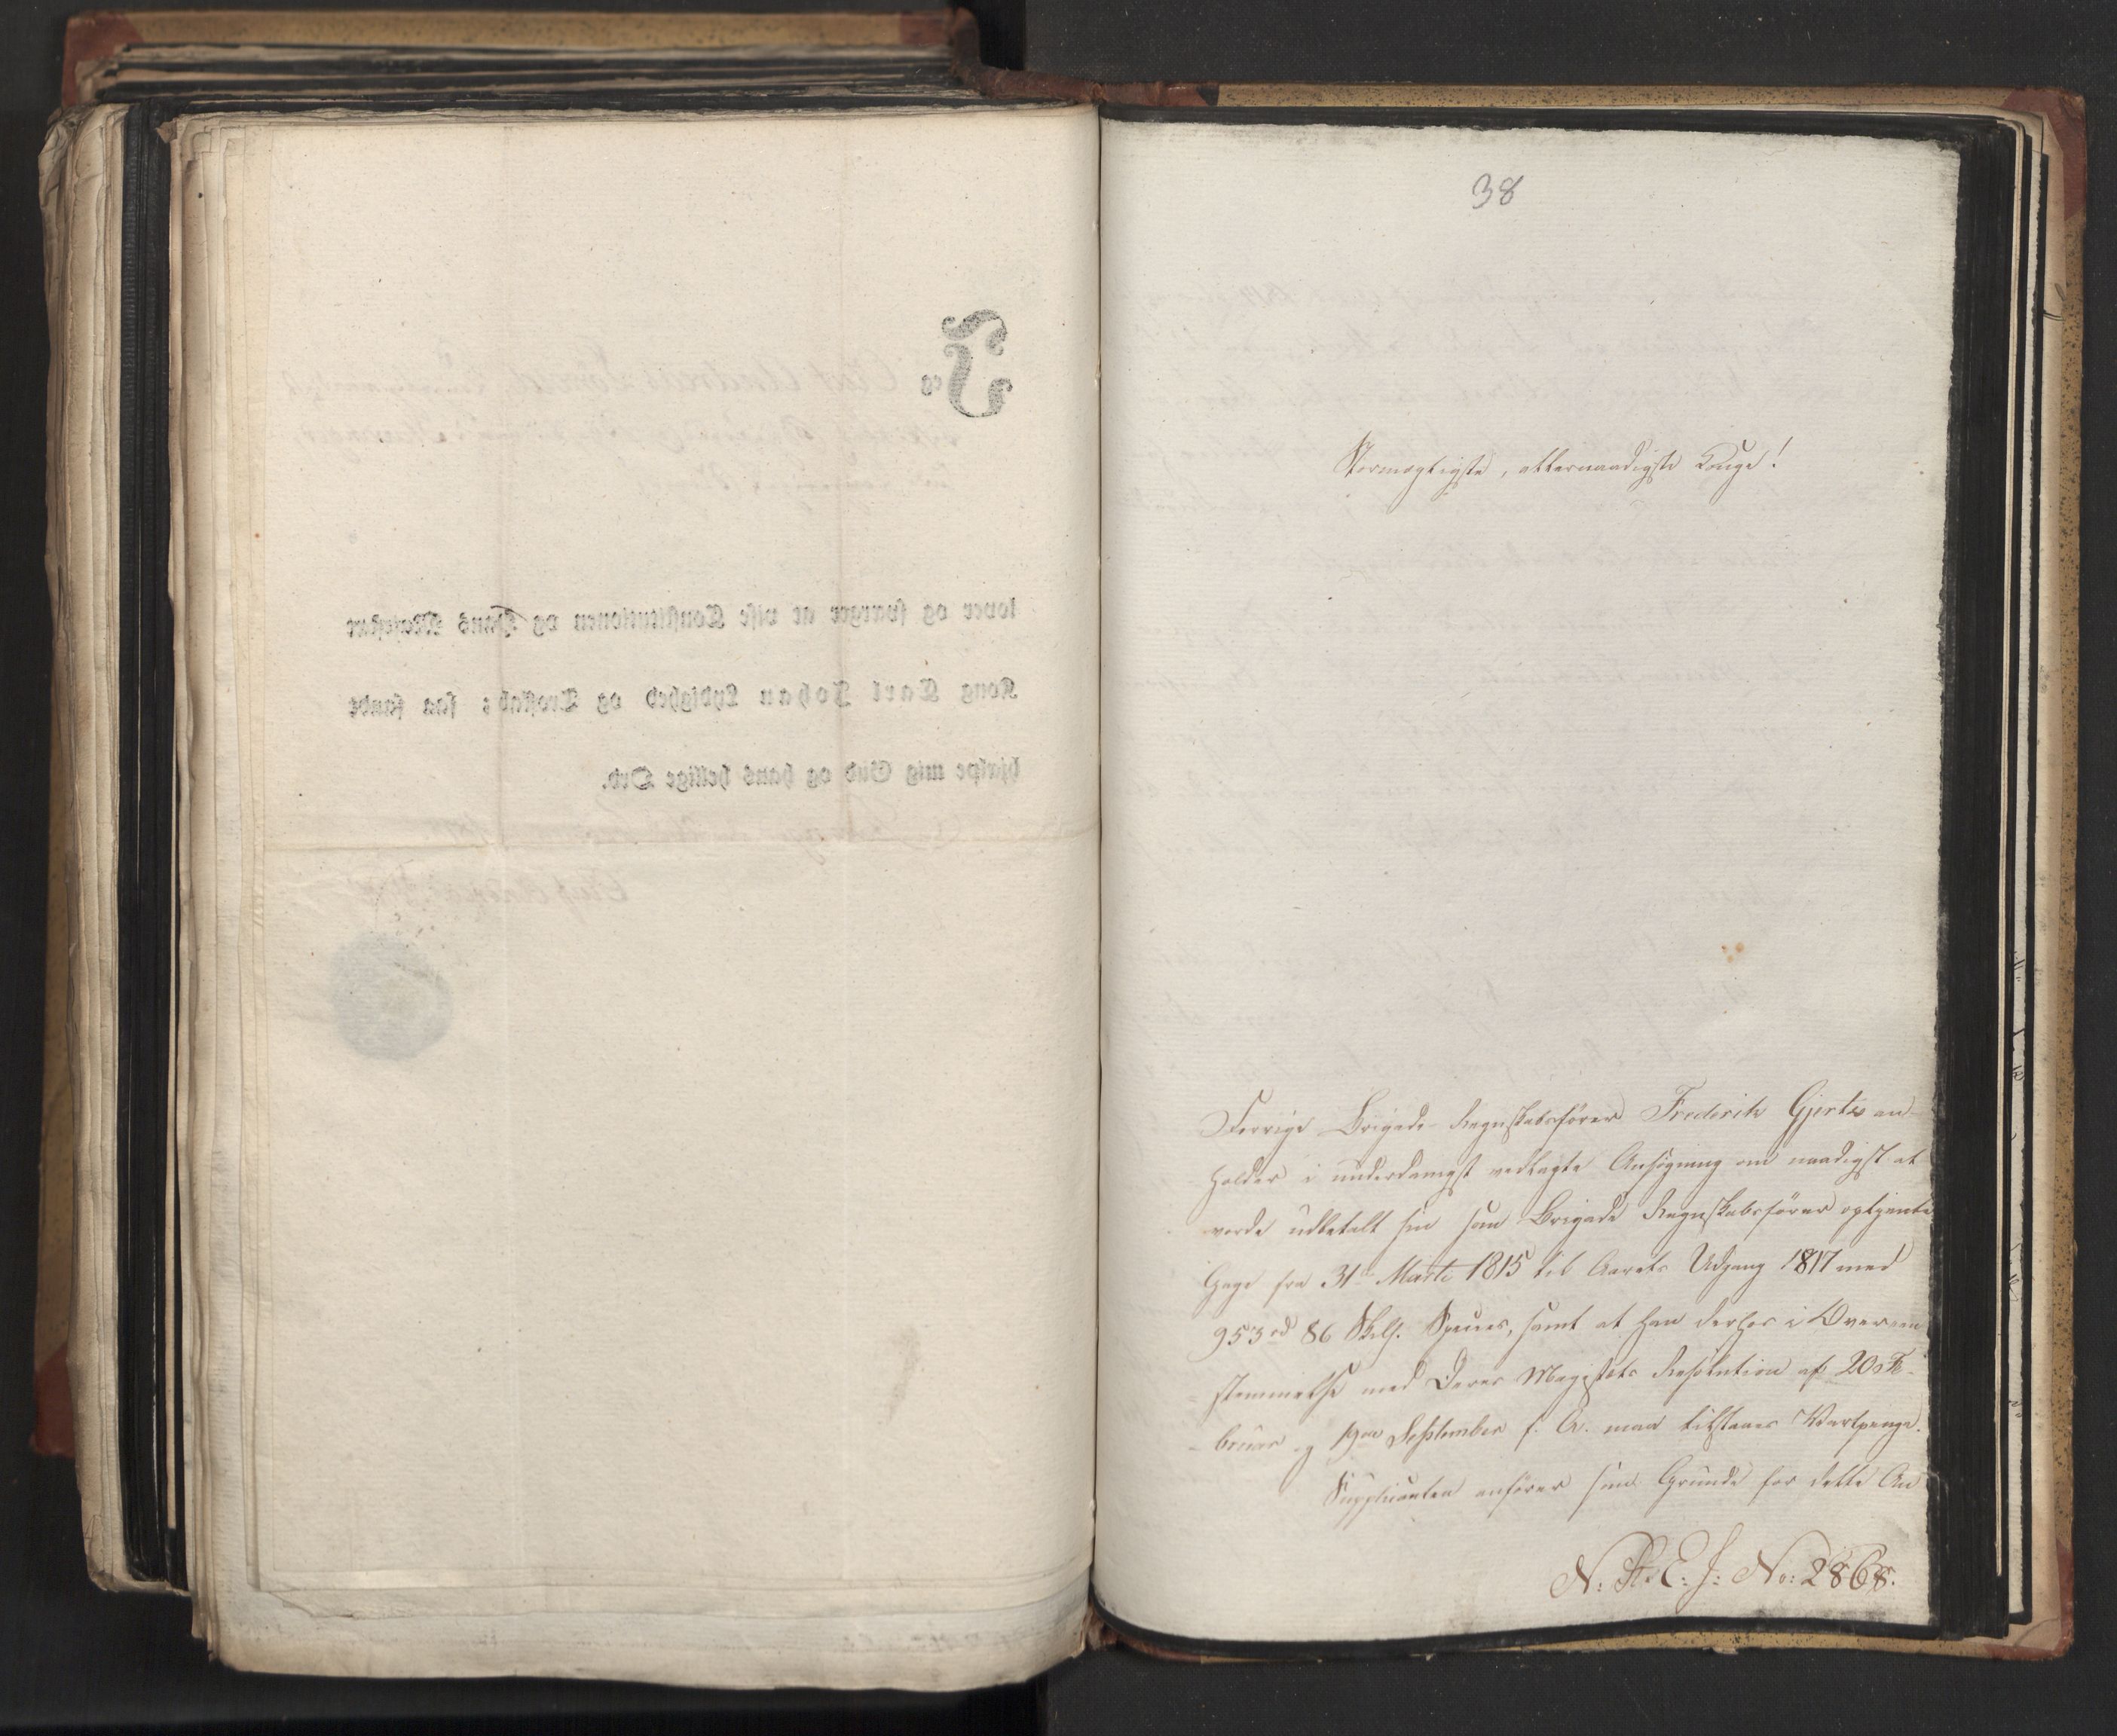 38
Stormægtigste, allernaadigste Konge!
Forrige Brigade-Regnskabsfører Frederik Gjertz an-
holder i underdanigst vedlagte Ansøgning om naadigst at
vorde udbetalt sin som Brigade Regnskabsfører optjente
Gage fra 31te Marti 1815 til Aarets Udgang 1817 med
953 rd 86 Skill. Species, samt at han derhos i Overeen
stemmelse med Deres Majestæts Resolution af 20de Fe-
bruar og 19de September f. A. maa tilstaaes Vartpenge.
Supplicanten anfører som Grunde for dette An
N: R: E: J: No: 2868.
lover og sværger at vise Constitutionen og Hans Majestæt
Kong Carl Johan Lydighed og Troskab; saa sandt
hjælpe mig Gud og hans hellige Ord.